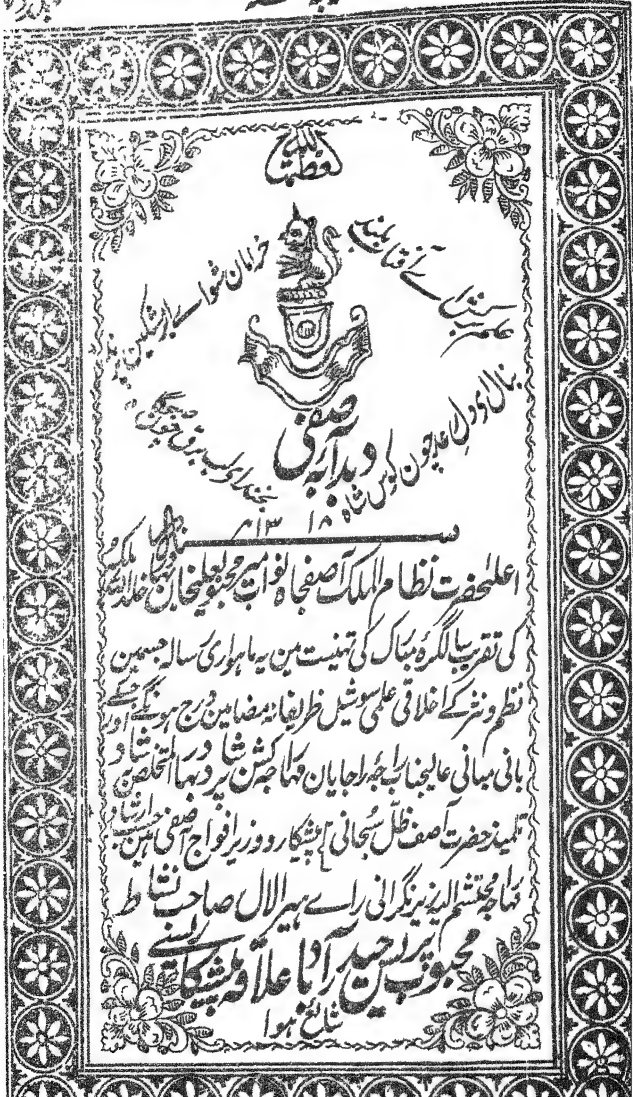 العظمة للہ
خرامان شو اے ابر مشکین پرند
بخند اے لب برق چون صبحگاہ
بنال اے دل رعد چون کوس شاہ
دبدبۂ آصفی
۱۳۱۸ھ
اعلیٰحضرت نظام الملک آصفجاہ نواب میر محبوب علیخان بہادر خلد اللہ ملکہ
کی تقریب سالگرۂ مبارک کی تہنیت مین یہ ماہواری رسالہ جسمین
نظم و نثر کے اخلاقی علمی سوشیل ظریفانہ مضامین درج ہونگے جسکے اور
بانی مبانی عالیجناب راجۂ راجایان مہاراجہ کشن پرشاد بہادر المتخلص شاد
تلمیذ حضرت آصف ظل سبحانی پیشکار و وزیر افواج آصفی ہین حسب ارشاد
مہاراجہ محتشم الیہ زیر نگرانی رائے ہیرالال صاحب نشاط
محبوب پریس حیدرآباد علاقہ پیشکاری سے
شائع ہوا